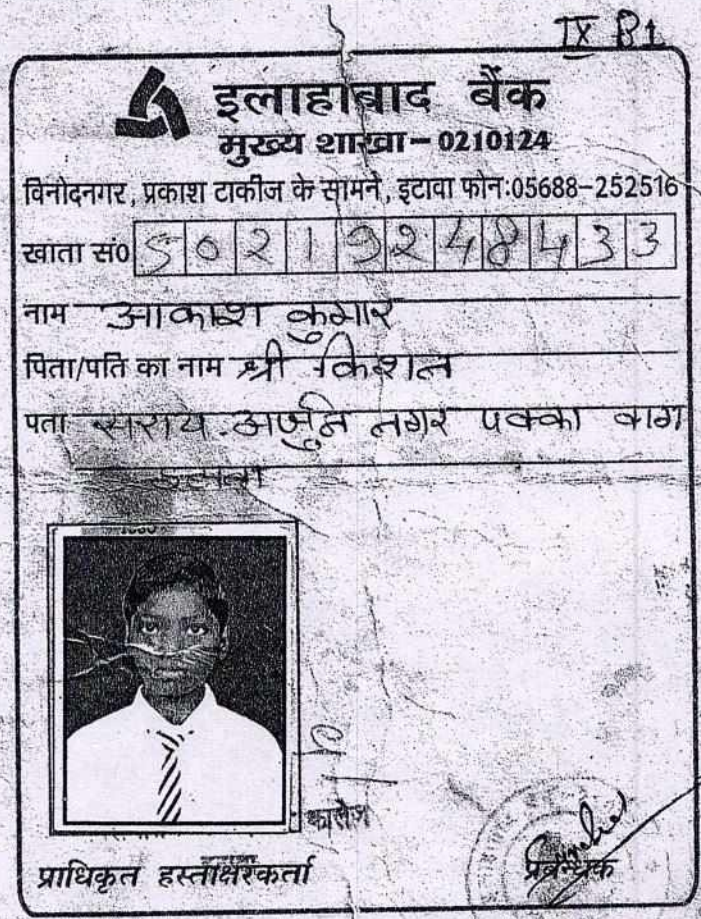 IX B1
इलाहाबाद बैंक
मुख्य शाखा-0210124
विनोदनगर, प्रकाश टाकीज के सामने, इटावा फोन:05688-252516
खाता सं० 50219248433
नाम आकाश कुमार
पिता/पति का नाम श्री किशन
पता सराय अर्जुन नगर पक्का बाग
इटावा
कालेज
प्राधिकृत हस्ताक्षरकर्ता
प्रबन्धक